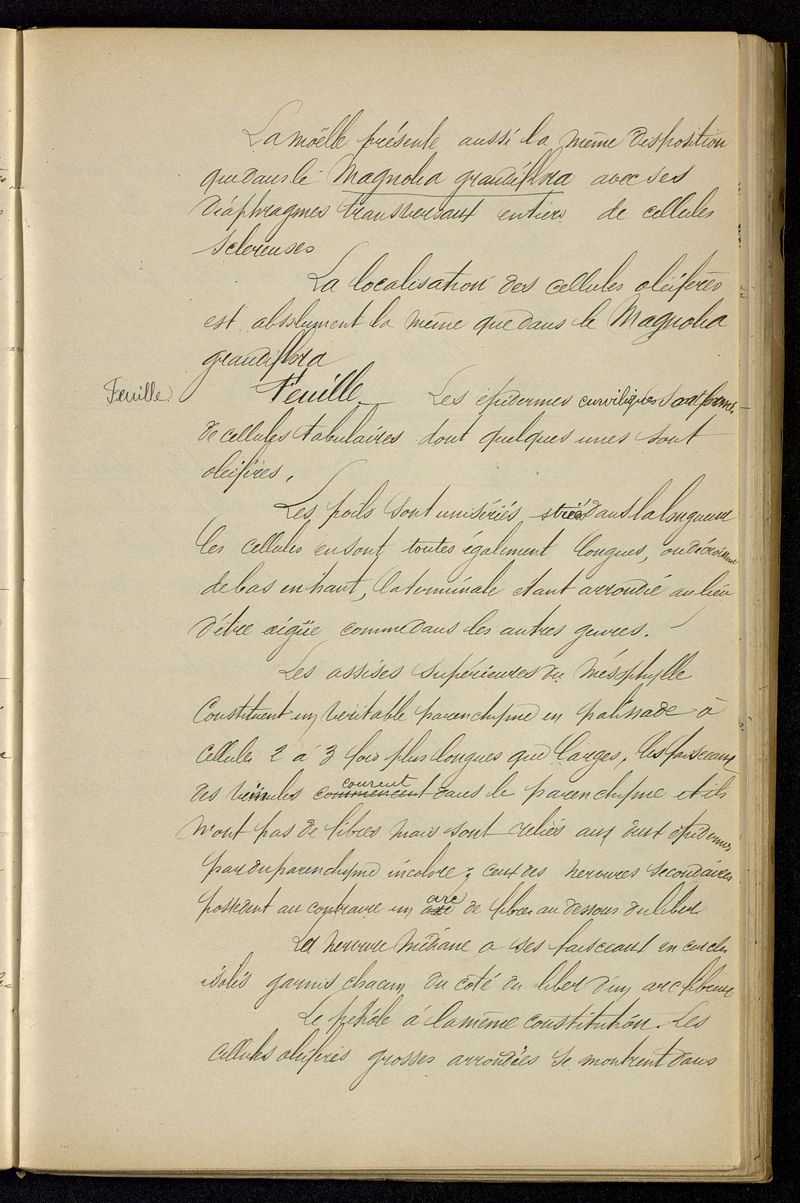 La moëlle présente aussi la même disposition
que dans le Magnolia grandiflora avec ses
diaphragmes transversaux entiers de cellules
scléreuses
La localisation des cellules oléifères
est absolument la même que dans le Magnolia
grandiflora
Feuille
Feuille Les épidermes curvilignes sont formés
de cellules tabulaires dont quelques unes sont
oléifères.
Les poils sont unisériés striés dans la longueur
les cellules en sont toutes également longues, ou décroissent
de bas en haut, la terminale étant arrondie au lieu
d'être aigüe comme dans les autres genres.
Les assises supérieures du mésophylle
constituent un véritable parenchyme en palissade à
cellules 2 à 3 fois plus longues que larges, les faisceaux
courent
des veinules commencent dans le parenchyme et ils
n'ont pas de fibres mais sont reliés aux deux épidermes
par du parenchyme incolore ; ceux des nervures secondaires
arc
possèdent au contraire un de fibres au dessous du liber
La nervure médiane a ses faisceaux en cercle
isolés garnis chacun du côté du liber d'un arc fibreux
Le pétiole à la même constitution. Les
cellules oléifères grosses arrondies se montrent dans